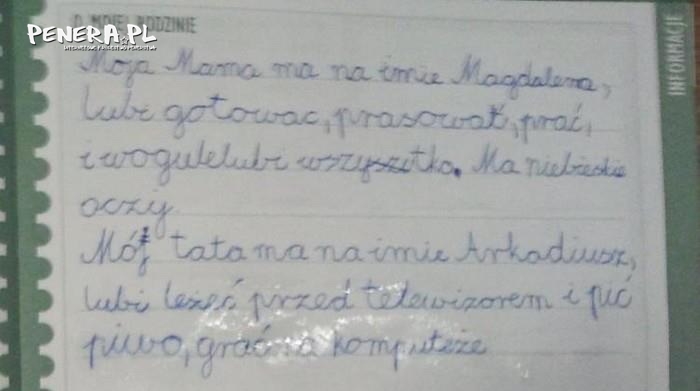 PENERA.PL
O MNIE I RODZINIE
INFORMACJE
Moja Mama ma na imie Magdalena,
lubi gotowac, prasować, prać,
i wogule lubi wszyszitko. Ma niebieskie
oczy
Mój tata ma na imie Arkadiusz,
lubi leżeć przed telewizorem i pić
piwo, grać na komputeże